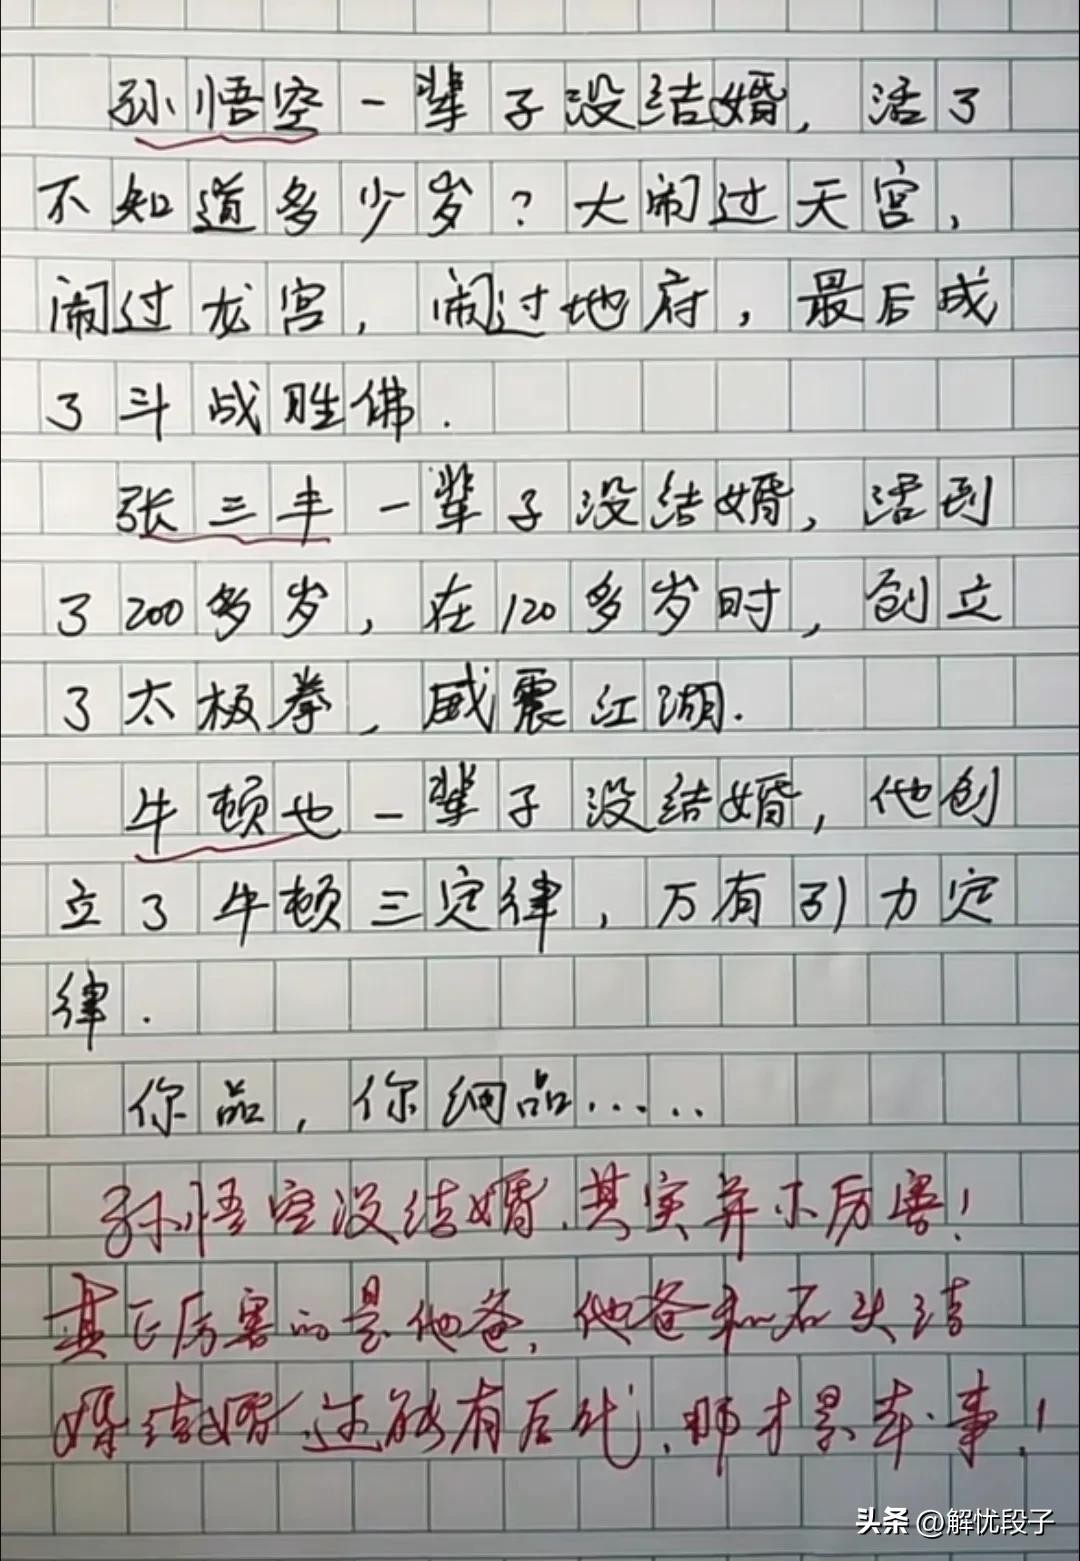 孙悟空一辈子没结婚，活了
不知道多少岁？大闹过天宫，
闹过龙宫，闹过地府，最后成
了斗战胜佛.
张三丰一辈子没结婚，活到
了200多岁，在120多岁时，创立
了太极拳，威震江湖.
牛顿也一辈子没结婚，他创
立了牛顿三定律，万有引力定
律.
你品，你细品.....
孙悟空没结婚.其实并不厉害！
真正厉害的是他爸，他爸和石头结
婚结婚还能有后代，那才是本事！
头条 @解忧段子